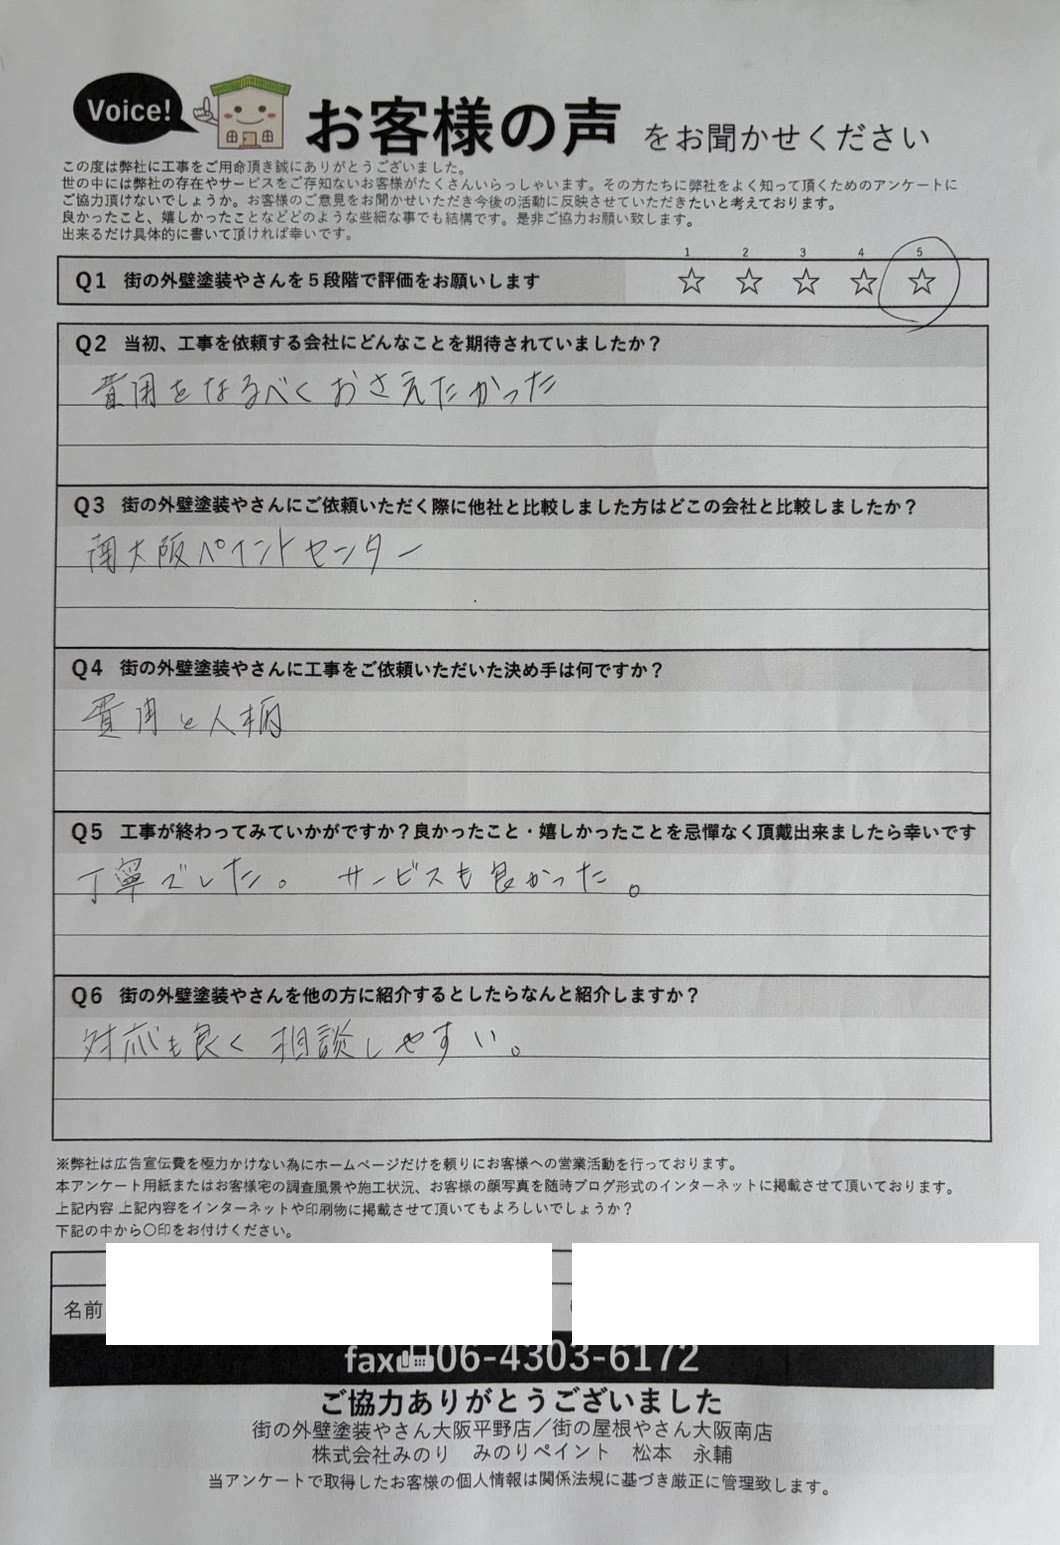 Voice!
お客様の声 をお聞かせください
この度は弊社に工事をご用命頂き誠にありがとうございました。
世の中には弊社の存在やサービスをご存知ないお客様がたくさんいらっしゃいます。その方たちに弊社をよく知って頂くためのアンケートに
ご協力頂けないでしょうか。お客様のご意見をお聞かせいただき今後の活動に反映させていただきたいと考えております。
良かったこと、嬉しかったことなどどのような些細な事でも結構です。是非ご協力お願い致します。
出来るだけ具体的に書いて頂ければ幸いです。
1 2 3 4 5
Q1 街の外壁塗装やさんを5段階で評価をお願いします ☆ ☆ ☆ ☆ ☆
Q2 当初、工事を依頼する会社にどんなことを期待されていましたか?
費用をなるべくおさえたかった
Q3 街の外壁塗装やさんにご依頼いただく際に他社と比較しました方はどこの会社と比較しましたか?
南大阪ペイントセンター
Q4 街の外壁塗装やさんに工事をご依頼いただいた決め手は何ですか?
費用と人柄
Q5 工事が終わってみていかがですか?良かったこと・嬉しかったことを忌憚なく頂戴出来ましたら幸いです
丁寧でした。 サービスも良かった。
Q6 街の外壁塗装やさんを他の方に紹介するとしたらなんと紹介しますか?
対応も良く相談しやすい。
※弊社は広告宣伝費を極力かけない為にホームページだけを頼りにお客様への営業活動を行っております。
本アンケート用紙またはお客様宅の調査風景や施工状況、お客様の顔写真を随時ブログ形式のインターネットに掲載させて頂いております。
上記内容 上記内容をインターネットや印刷物に掲載させて頂いてもよろしいでしょうか?
下記の中から〇印をお付けください。
名前
fax 06-4303-6172
ご協力ありがとうございました
街の外壁塗装やさん大阪平野店/街の屋根やさん大阪南店
株式会社みのり みのりペイント 松本 永輔
当アンケートで取得したお客様の個人情報は関係法規に基づき厳正に管理致します。